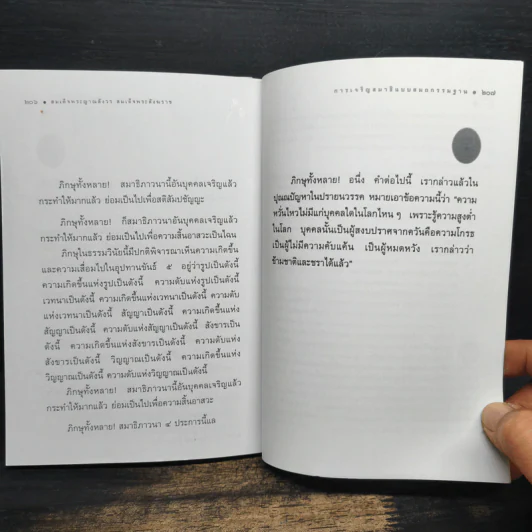 ๒๐๖ ● สมเด็จพระญาณสังวร สมเด็จพระสังฆราช
ภิกษุทั้งหลาย! สมาธิภาวนานี้อันบุคคลเจริญแล้ว
กระทำให้มากแล้ว ย่อมเป็นไปเพื่อสติสัมปชัญญะ
ภิกษุทั้งหลาย! ก็สมาธิภาวนาอันบุคคลเจริญแล้ว
กระทำให้มากแล้ว ย่อมเป็นไปเพื่อความสิ้นอาสวะเป็นไฉน
ภิกษุในธรรมวินัยนี้มีปกติพิจารณาเห็นความเกิดขึ้น
และความเสื่อมไปในอุปทานขันธ์ ๕ อยู่ว่ารูปเป็นดังนี้
ความเกิดขึ้นแห่งรูปเป็นดังนี้ ความดับแห่งรูปเป็นดังนี้
เวทนาเป็นดังนี้ ความเกิดขึ้นแห่งเวทนาเป็นดังนี้ ความดับ
แห่งเวทนาเป็นดังนี้ สัญญาเป็นดังนี้ ความเกิดขึ้นแห่ง
สัญญาเป็นดังนี้ ความดับแห่งสัญญาเป็นดังนี้ สังขารเป็น
ดังนี้ ความเกิดขึ้นแห่งสังขารเป็นดังนี้ ความดับแห่ง
สังขารเป็นดังนี้ วิญญาณเป็นดังนี้ ความเกิดขึ้นแห่ง
วิญญาณเป็นดังนี้ ความดับแห่งวิญญาณเป็นดังนี้
ภิกษุทั้งหลาย! สมาธิภาวนานี้อันบุคคลเจริญแล้ว
กระทำให้มากแล้ว ย่อมเป็นไปเพื่อความสิ้นอาสวะ
ภิกษุทั้งหลาย! สมาธิภาวนา ๔ ประการนี้แล
การเจริญสมาธิแบบสมถกรรมฐาน ● ๒๐๗
ภิกษุทั้งหลาย! อนึ่ง คำต่อไปนี้ เรากล่าวแล้วใน
ปุณณปัญหาในปรายนวรรค หมายเอาข้อความนี้ว่า "ความ
หวั่นไหวไม่มีแก่บุคคลใดในโลกไหน ๆ เพราะรู้ความสูงต่ำ
ในโลก บุคคลนั้นเป็นผู้สงบปราศจากควันคือความโกรธ
เป็นผู้ไม่มีความคับแค้น เป็นผู้หมดหวัง เรากล่าวว่า
ข้ามชาติและชราได้แล้ว"